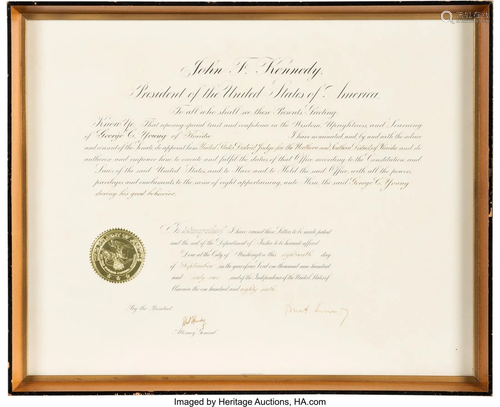 John F. Kennedy,
President of the United States of America.
To all who shall see these Presents, Greeting:
Know Ye, That reposing special trust and confidence in the Wisdom, Uprightness, and Learning
of George C. Young of Florida I have nominated, and, by and with the advice
and consent of the Senate, do appoint him United States District Judge for the Northern and Southern Districts of Florida and do
authorize and empower him to execute and fulfil the duties of that Office according to the Constitution and
Laws of the said United States, and to Have and to Hold the said Office, with all the powers,
privileges and emoluments to the same of right appertaining, unto Him, the said George C. Young
during his good behavior.
In testimony whereof, I have caused these Letters to be made patent
and the seal of the Department of Justice to be hereunto affixed.
Done at the City of Washington this eighteenth day
of September in the year of our Lord one thousand nine hundred
and sixty-one and of the Independence of the United States of
America the one hundred and eighty-sixth.
By the President:
Attorney General.
Imaged by Heritage Auctions, HA.com